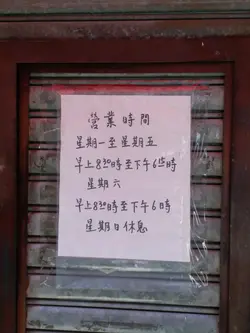 營業時間
星期一至星期五
早上8³⁰時至下午6¹⁵時
星期六
早上8³⁰時至下午6時
星期日休息